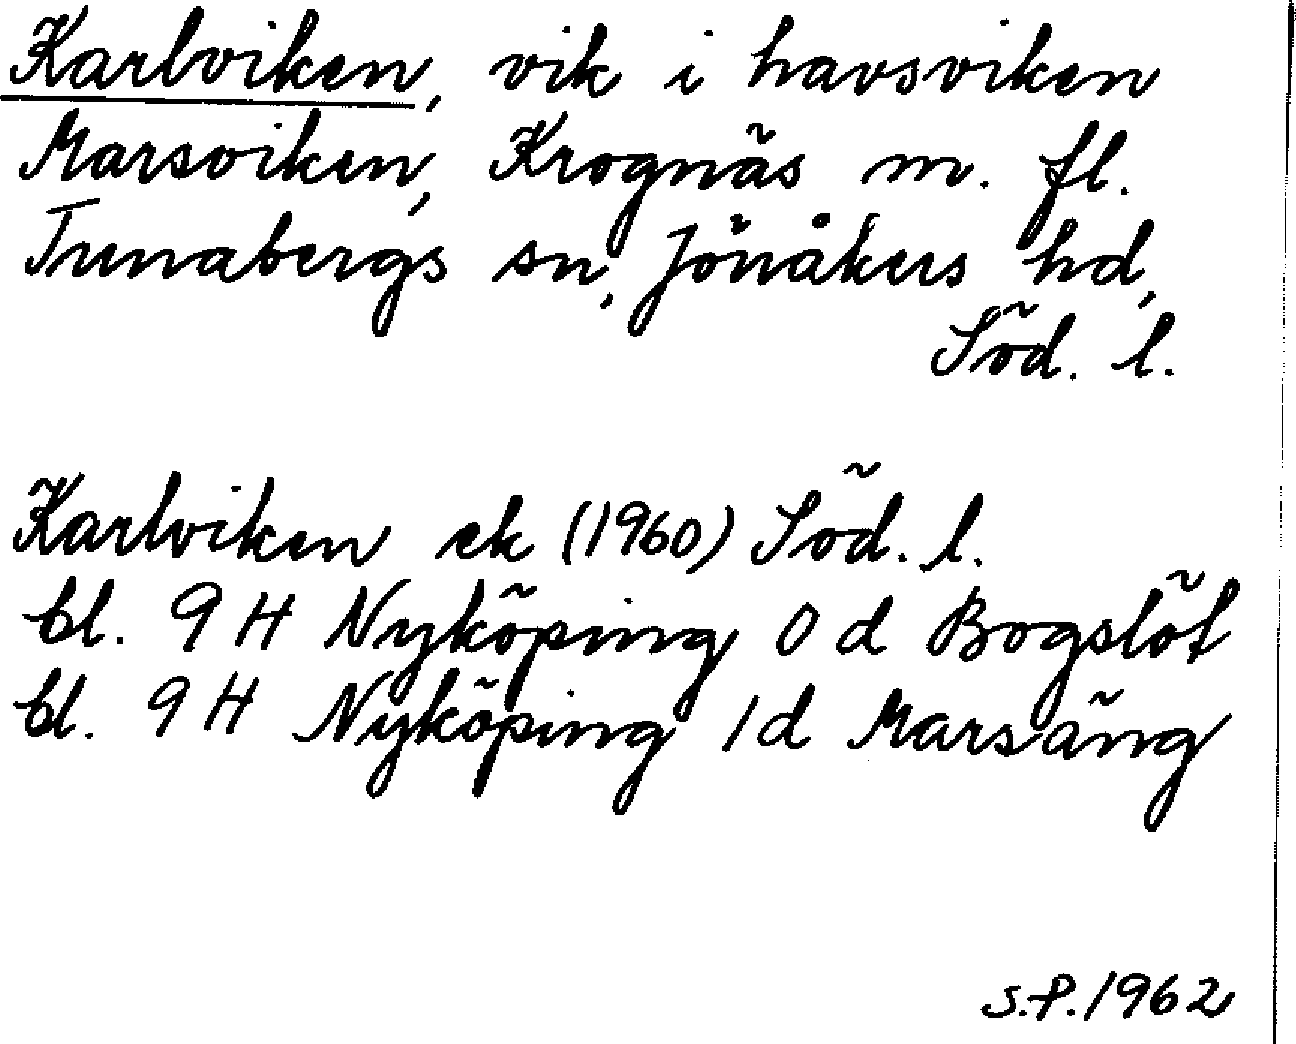 Karlviken, vik i havsviken
Marsviken, Krognäs m. fl.
Tunabergs sn, Jönåkers hd,
Söd. l.
Karlviken ek (1960) Söd. l.
bl. 9 H Nyköping 0 d Bogslöt
bl. 9 H Nyköping 1 d Marsäng
S.P. 1962